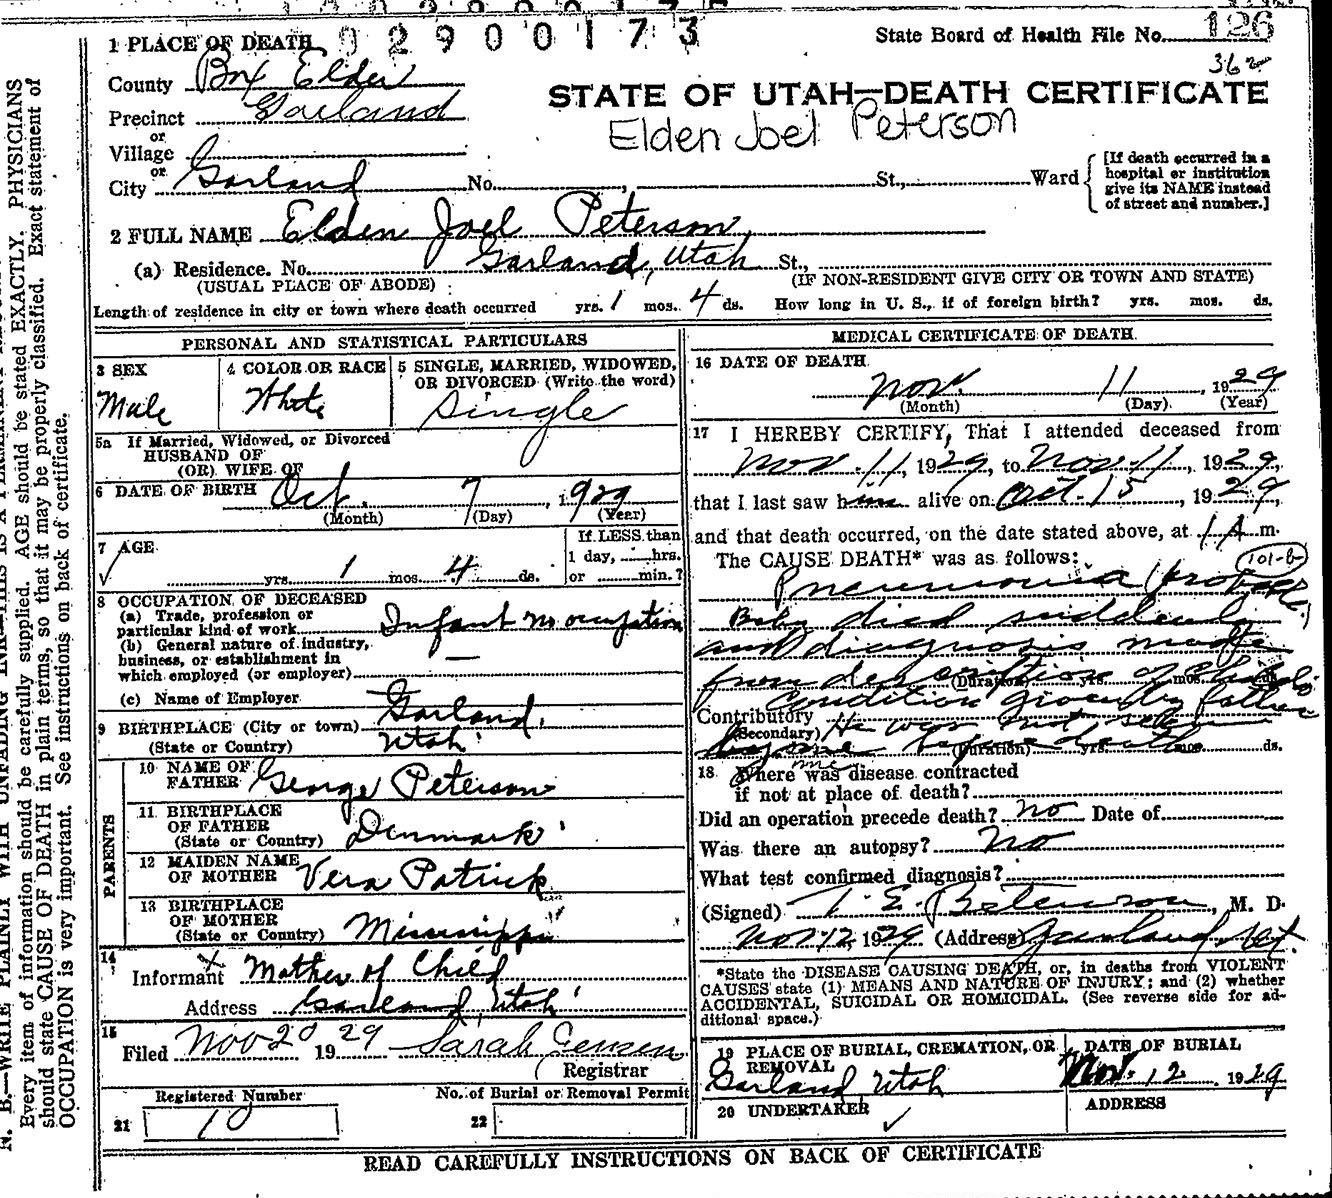 02900173
State Board of Health File No. 126
362
1 PLACE OF DEATH
County Box Elder
STATE OF UTAH—DEATH CERTIFICATE
Precinct Garland
Elden Joel Peterson
or
Village
or
City Garland No. , St., Ward
[If death occurred in a
hospital or institution
give its NAME instead
of street and number.]
2 FULL NAME Elden Joel Peterson
(a) Residence. No. Garland, Utah St.,
(USUAL PLACE OF ABODE) (IF NON-RESIDENT GIVE CITY OR TOWN AND STATE)
Length of residence in city or town where death occurred yrs. 1 mos. 4 ds. How long in U. S., if of foreign birth? yrs. mos. ds.
PERSONAL AND STATISTICAL PARTICULARS
3 SEX
Male
4 COLOR OR RACE
White
5 SINGLE, MARRIED, WIDOWED,
OR DIVORCED (Write the word)
Single
5a If Married, Widowed, or Divorced
HUSBAND OF
(OR) WIFE OF
6 DATE OF BIRTH Oct. 7, 1929
(Month) (Day) (Year)
7 AGE
yrs. 1 mos. 4 ds.
If LESS than
1 day, hrs.
or min.?
8 OCCUPATION OF DECEASED
(a) Trade, profession or
particular kind of work Infant no occupation
(b) General nature of industry,
business, or establishment in
which employed (or employer) —
(c) Name of Employer
9 BIRTHPLACE (City or town) Garland,
(State or Country) Utah
PARENTS
10 NAME OF
FATHER George Peterson
11 BIRTHPLACE
OF FATHER
(State or Country) Denmark
12 MAIDEN NAME
OF MOTHER Vera Patrick
13 BIRTHPLACE
OF MOTHER
(State or Country) Mississippi
14
Informant Mother of Child
Address Garland, Utah
15
Filed Nov 20 1929 Sarah Jensen
Registrar
Registered Number
21 10
No. of Burial or Removal Permit
22
MEDICAL CERTIFICATE OF DEATH
16 DATE OF DEATH
Nov. 11 1929
(Month) (Day) (Year)
17 I HEREBY CERTIFY, That I attended deceased from
Nov. 11, 1929, to Nov 11, 1929,
that I last saw him alive on Oct. 15, 1929,
and that death occurred, on the date stated above, at 1 A m.
The CAUSE DEATH* was as follows:
101-b
Pneumonia (probable)
Baby died suddenly
and diagnosis made
from description of child's
(Duration) yrs. mos. ds.
condition given by father
Contributory
(Secondary) He was not seen
by me before death
(Duration) yrs. mos. ds.
18 Where was disease contracted
if not at place of death?
Did an operation precede death? no Date of
Was there an autopsy? No
What test confirmed diagnosis?
(Signed) , M. D.
Nov 12, 1929 (Address) Garland, Ut.
*State the DISEASE CAUSING DEATH, or, in deaths from VIOLENT
CAUSES state (1) MEANS AND NATURE OF INJURY; and (2) whether
ACCIDENTAL, SUICIDAL OR HOMICIDAL. (See reverse side for ad-
ditional space.)
19 PLACE OF BURIAL, CREMATION, OR
REMOVAL
Garland Utah
DATE OF BURIAL
Nov. 12, 1929
20 UNDERTAKER
ADDRESS
READ CAREFULLY INSTRUCTIONS ON BACK OF CERTIFICATE
N. B.—WRITE PLAINLY WITH UNFADING INK—THIS IS A PERMANENT
Every item of information should be carefully supplied. AGE should be stated EXACTLY. PHYSICIANS
should state CAUSE OF DEATH in plain terms, so that it may be properly classified. Exact statement of
OCCUPATION is very important. See instructions on back of certificate.